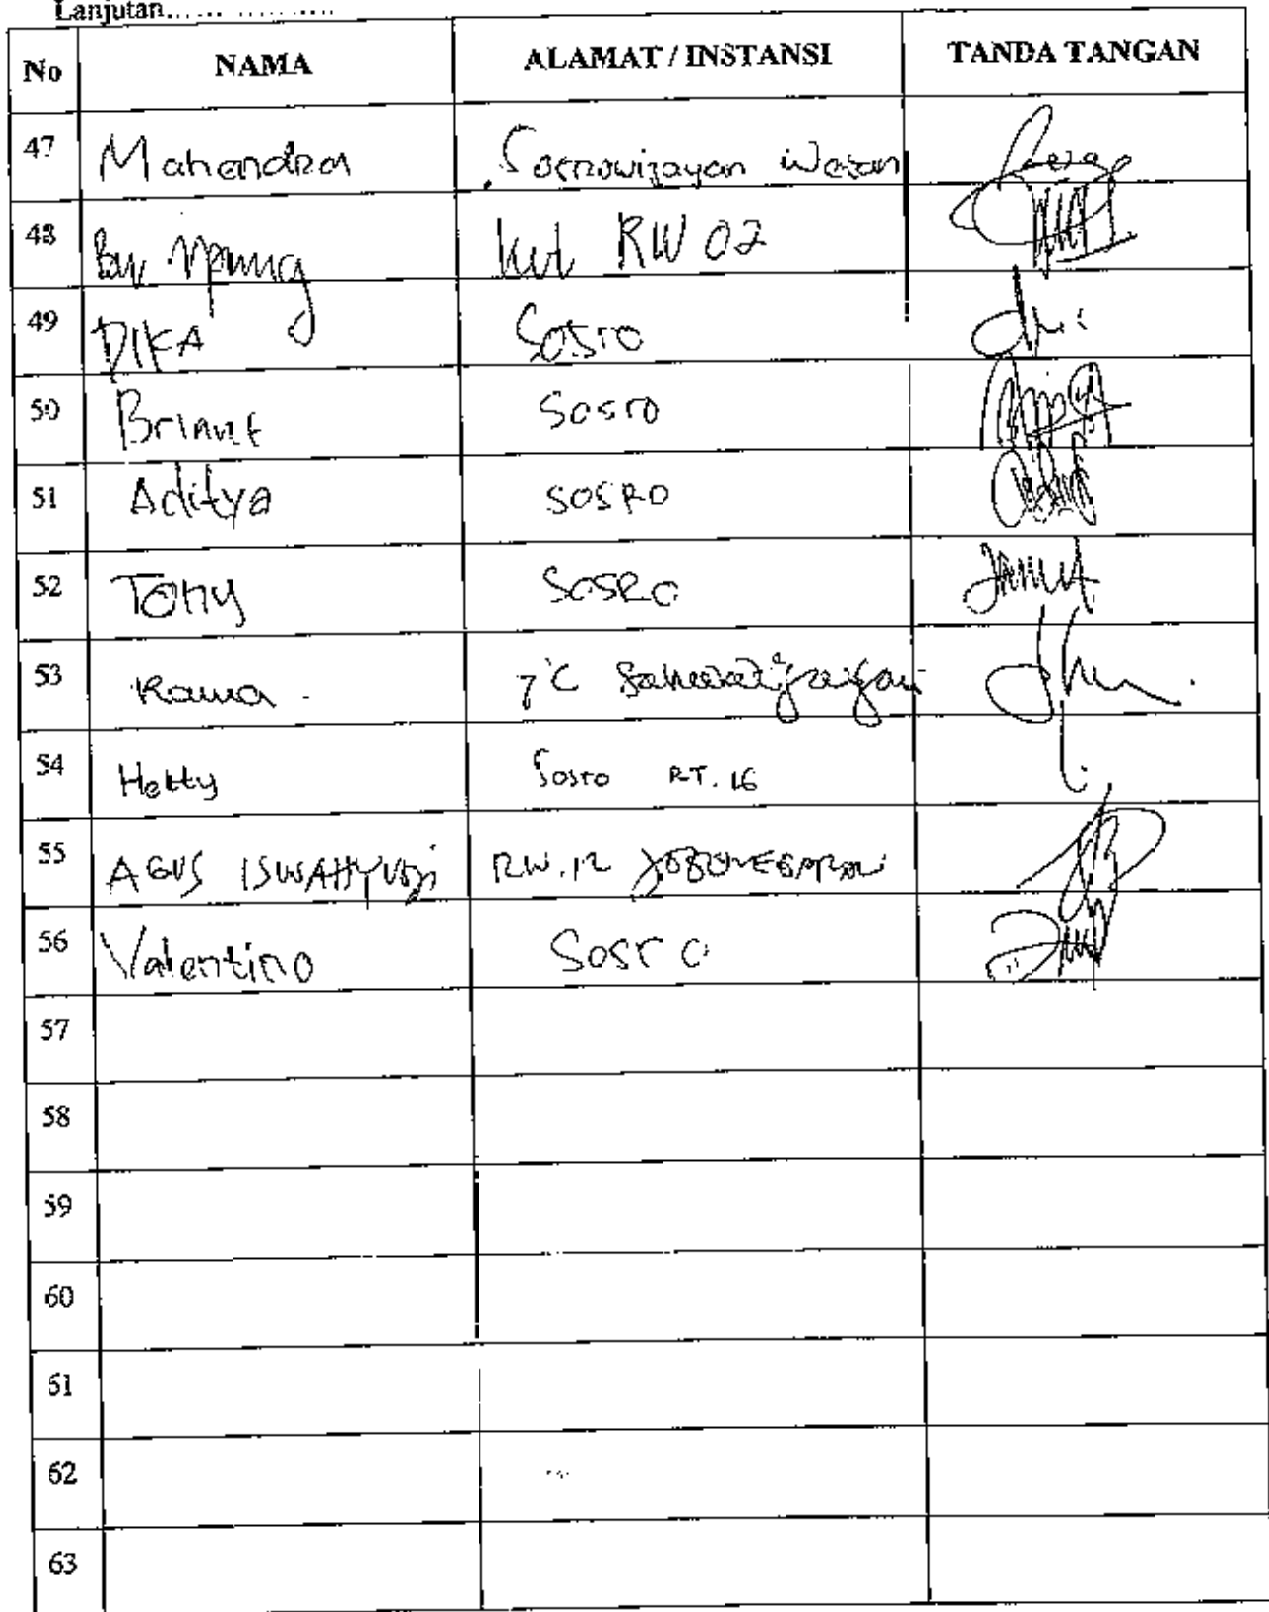 Lanjutan...................
No NAMA ALAMAT / INSTANSI TANDA TANGAN
47 Mahendra Sosrowijayan Wetan
48 RW 02
49 DIKA Sosro
50 Sosro
51 Aditya SOSRO
52 Tony SOSRO
53 Rama 7 C
54 Hetty Sosro RT. 16
55 AGUS ISWAHYUDI RW. 12
56 Valentino Sosro
57
58
59
60
61
62
63